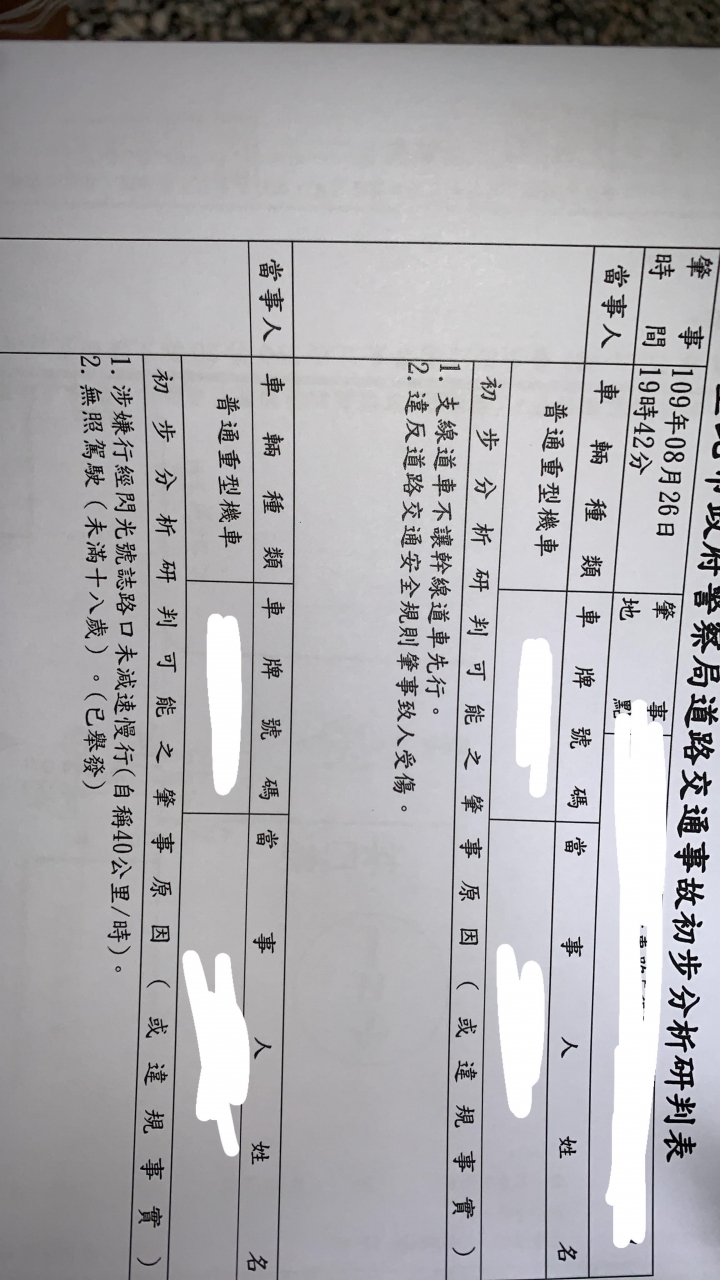 市政府警察局道路交通事故初步分析研判表
肇事時間 109年08月26日 19時42分 肇事地點
當事人 車輛種類 車牌號碼 當事人姓名
普通重型機車
初步分析研判可能之肇事原因（或違規事實）
1. 支線道車不讓幹線道車先行。
2. 違反道路交通安全規則肇事致人受傷。
當事人 車輛種類 車牌號碼 當事人姓名
普通重型機車
初步分析研判可能之肇事原因（或違規事實）
1. 涉嫌行經閃光號誌路口未減速慢行(自稱40公里/時)。
2. 無照駕駛（未滿十八歲）。(已舉發)